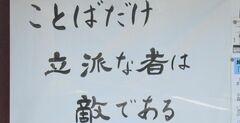 ことばだけ
立派な者は
敵である